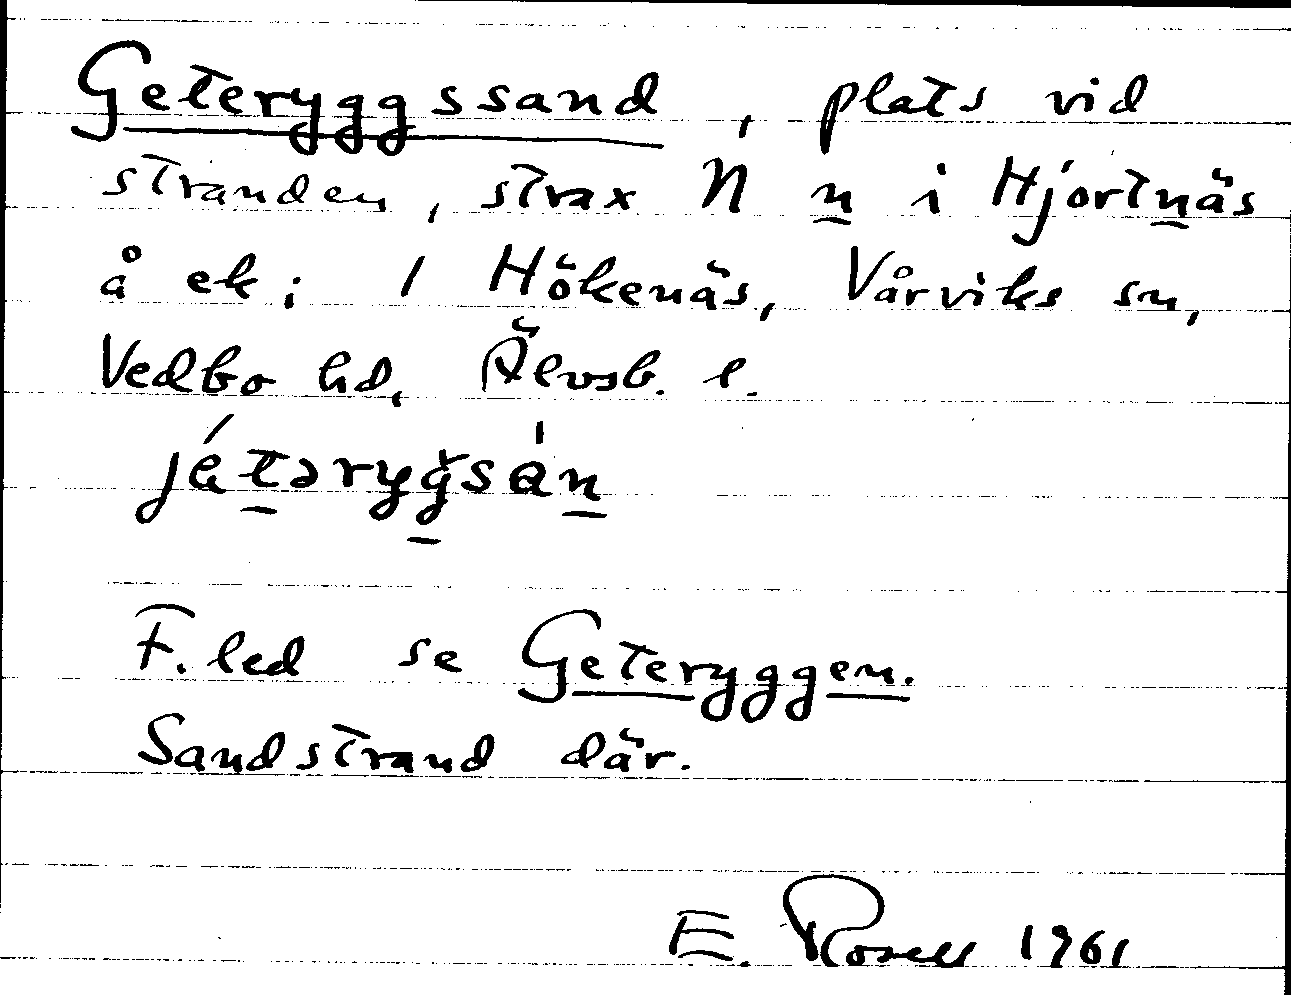 Geteryggssand, plats vid
stranden, strax N n i Hjortnäs
å ek; 1 Hökenäs, Vårviks sn,
Vedbo hd, Älvsb. l.
játərygsán
F. led se Geteryggen.
Sandstrand där.
E. Rosell 1961